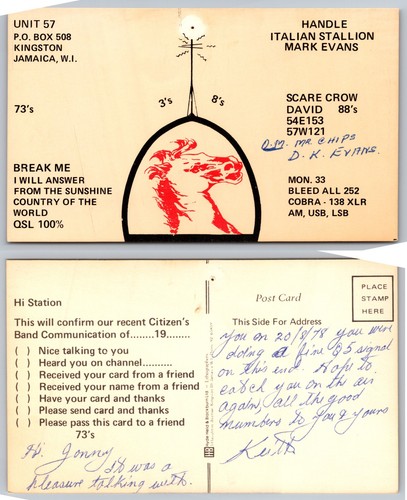 UNIT 57
P.O. BOX 508
KINGSTON
JAMAICA, W.I.
HANDLE
ITALIAN STALLION
MARK EVANS
73's
3's
8's
SCARE CROW
DAVID 88's
54E153
57W121
O.M. MR CHIPS
D. K. EVANS.
BREAK ME
I WILL ANSWER
FROM THE SUNSHINE
COUNTRY OF THE
WORLD
QSL 100%
MON. 33
BLEED ALL 252
COBRA - 138 XLR
AM, USB, LSB
Hi Station
This will confirm our recent Citizen's
Band Communication of........19........
( ) Nice talking to you
( ) Heard you on channel..........
( ) Received your card from a friend
( ) Received your name from a friend
( ) Have your card and thanks
( ) Please send card and thanks
( ) Please pass this card to a friend
73's
Hi. Jonny
it was a
pleasure talking with.
Post Card
PLACE
STAMP
HERE
This Side For Address
you on 20/8/78 you were
doing a fine S5 signal
on this end. Hope to
catch you on the air
again, all the good
numbers to you & yours
Keith